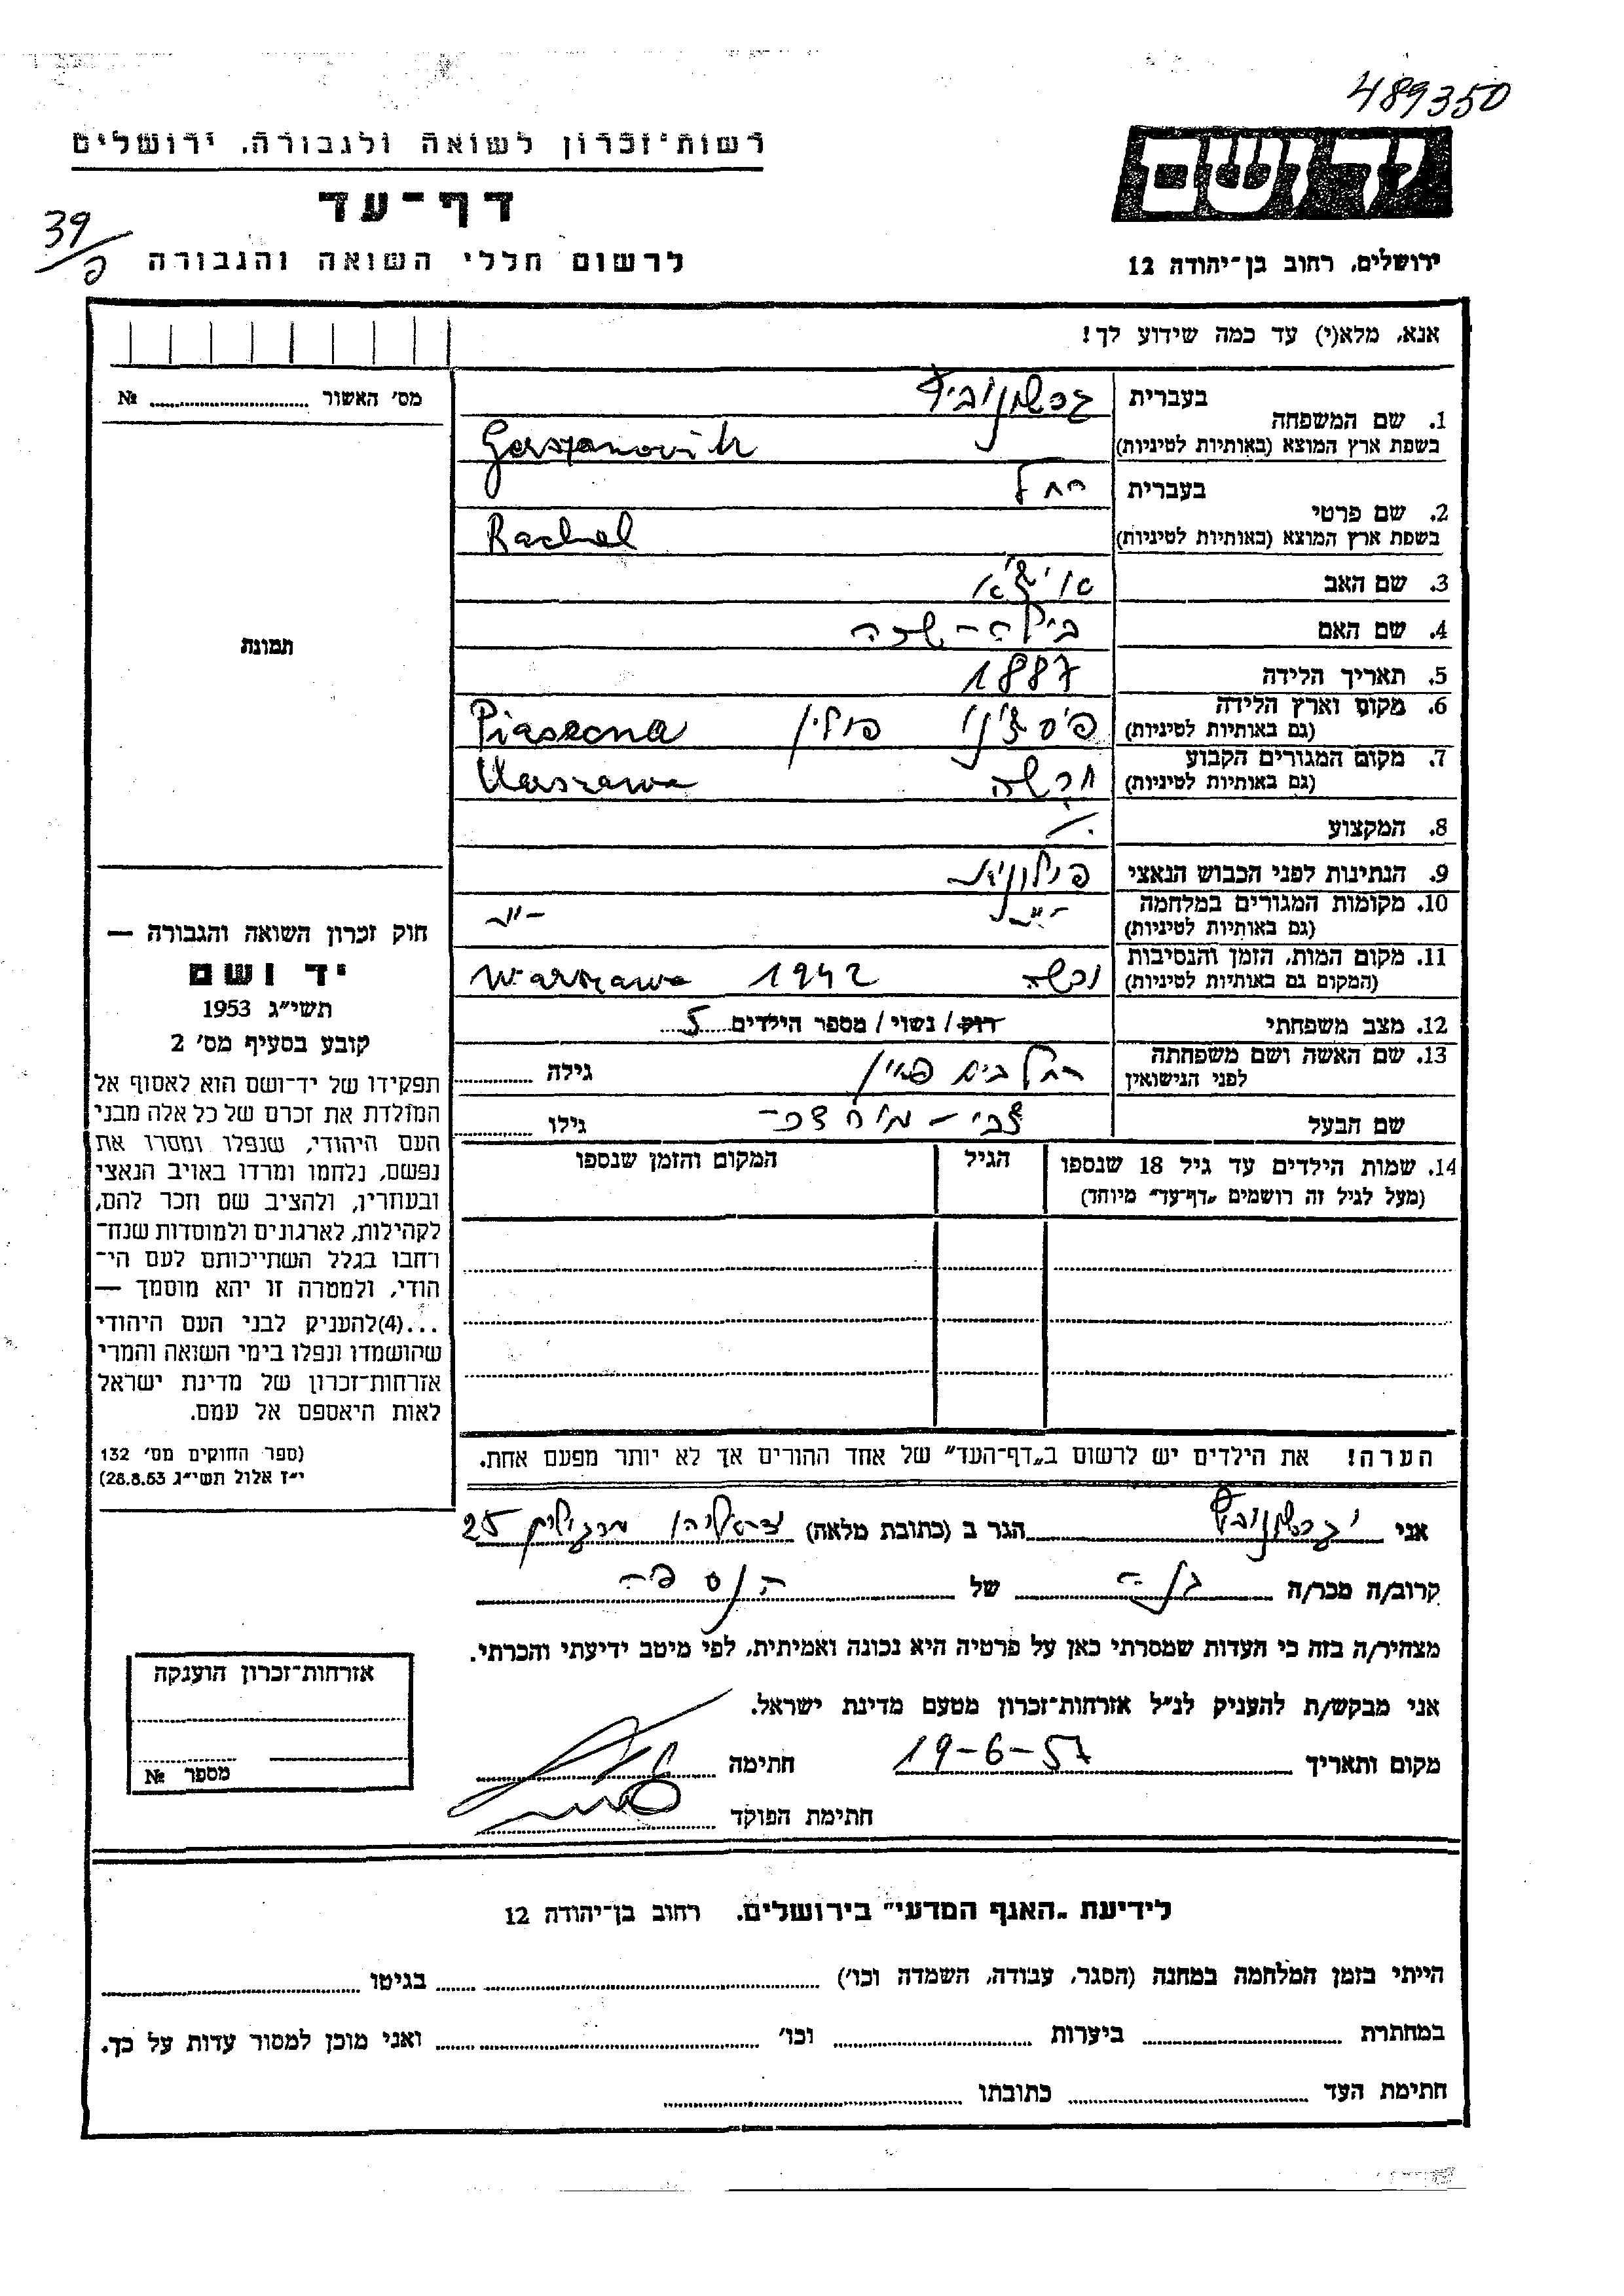 489350
רשות־זכרון לשואה ולגבורה, ירושלים
יד ושם
דף־עד
39/פ
לרשום חללי השואה והגבורה
ירושלים, רחוב בן־יהודה 12
אנא, מלא(י) עד כמה שידוע לך!
מס׳ האשור № 
1. שם המשפחה
בעברית גרשנוביץ
בשפת ארץ המוצא (באותיות לטיניות)
2. שם פרטי
בעברית רחל
בשפת ארץ המוצא (באותיות לטיניות) Rachel
3. שם האב
4. שם האם
5. תאריך הלידה 1887
6. מקום וארץ הלידה פולין
(גם באותיות לטיניות)
7. מקום המגורים הקבוע ורשה
(גם באותיות לטיניות) Warszawa
8. המקצוע
9. הנתינות לפני הכבוש הנאצי
10. מקומות המגורים במלחמה -"- -"-
(גם באותיות לטיניות)
11. מקום המות, הזמן והנסיבות ורשה 1942 Warszawa
(המקום גם באותיות לטיניות)
12. מצב משפחתי רווק/ נשוי/ מספר הילדים 5
13. שם האשה ושם משפחתה רחל גילה
לפני הנישואין
שם הבעל צבי – גילו
14. שמות הילדים עד גיל 18 שנספו הגיל המקום והזמן שנספו
(מעל לגיל זה רושמים „דף־עד” מיוחד)
תמונת
חוק זכרון השואה והגבורה —
יד ושם
תשי״ג 1953
קובע בסעיף מס׳ 2
תפקידו של יד־ושם הוא לאסוף אל
המולדת את זכרם של כל אלה מבני
העם היהודי, שנפלו ומסרו את
נפשם, נלחמו ומרדו באויב הנאצי
ובעוזריו, ולהציב שם וזכר להם,
לקהילות, לארגונים ולמוסדות שנח־
רבו בגלל השתייכותם לעם הי־
הודי, ולמטרה זו יהא מוסמך —
...(4)להעניק לבני העם היהודי
שהושמדו ונפלו בימי השואה והמרי
אזרחות־זכרון של מדינת ישראל
לאות היאספם אל עמם.
(ספר החוקים מס׳ 132
י״ז אלול תשי״ג 28.8.53)
הערה! את הילדים יש לרשום ב„דף־העד” של אחד ההורים אך לא יותר מפעם אחת.
אני גרשנוביץ הגר ב (כתובת מלאה) 25
קרוב/ה מכר/ה של הנספה
מצהיר/ה בזה כי העדות שמסרתי כאן על פרטיה היא נכונה ואמיתית, לפי מיטב ידיעתי והכרתי.
אני מבקש/ת להעניק לנ״ל אזרחות־זכרון מטעם מדינת ישראל.
מקום ותאריך 19-6-57 חתימה
חתימת הפוקד
אזרחות־זכרון הוענקה
מספר №
לידיעת „האגף המדעי” בירושלים, רחוב בן־יהודה 12
הייתי בזמן המלחמה במחנה (הסגר, עבודה, השמדה וכו׳) בגיטו
במחתרת ביערות וכו׳ ואני מוכן למסור עדות על כך.
חתימת העד כתובתו